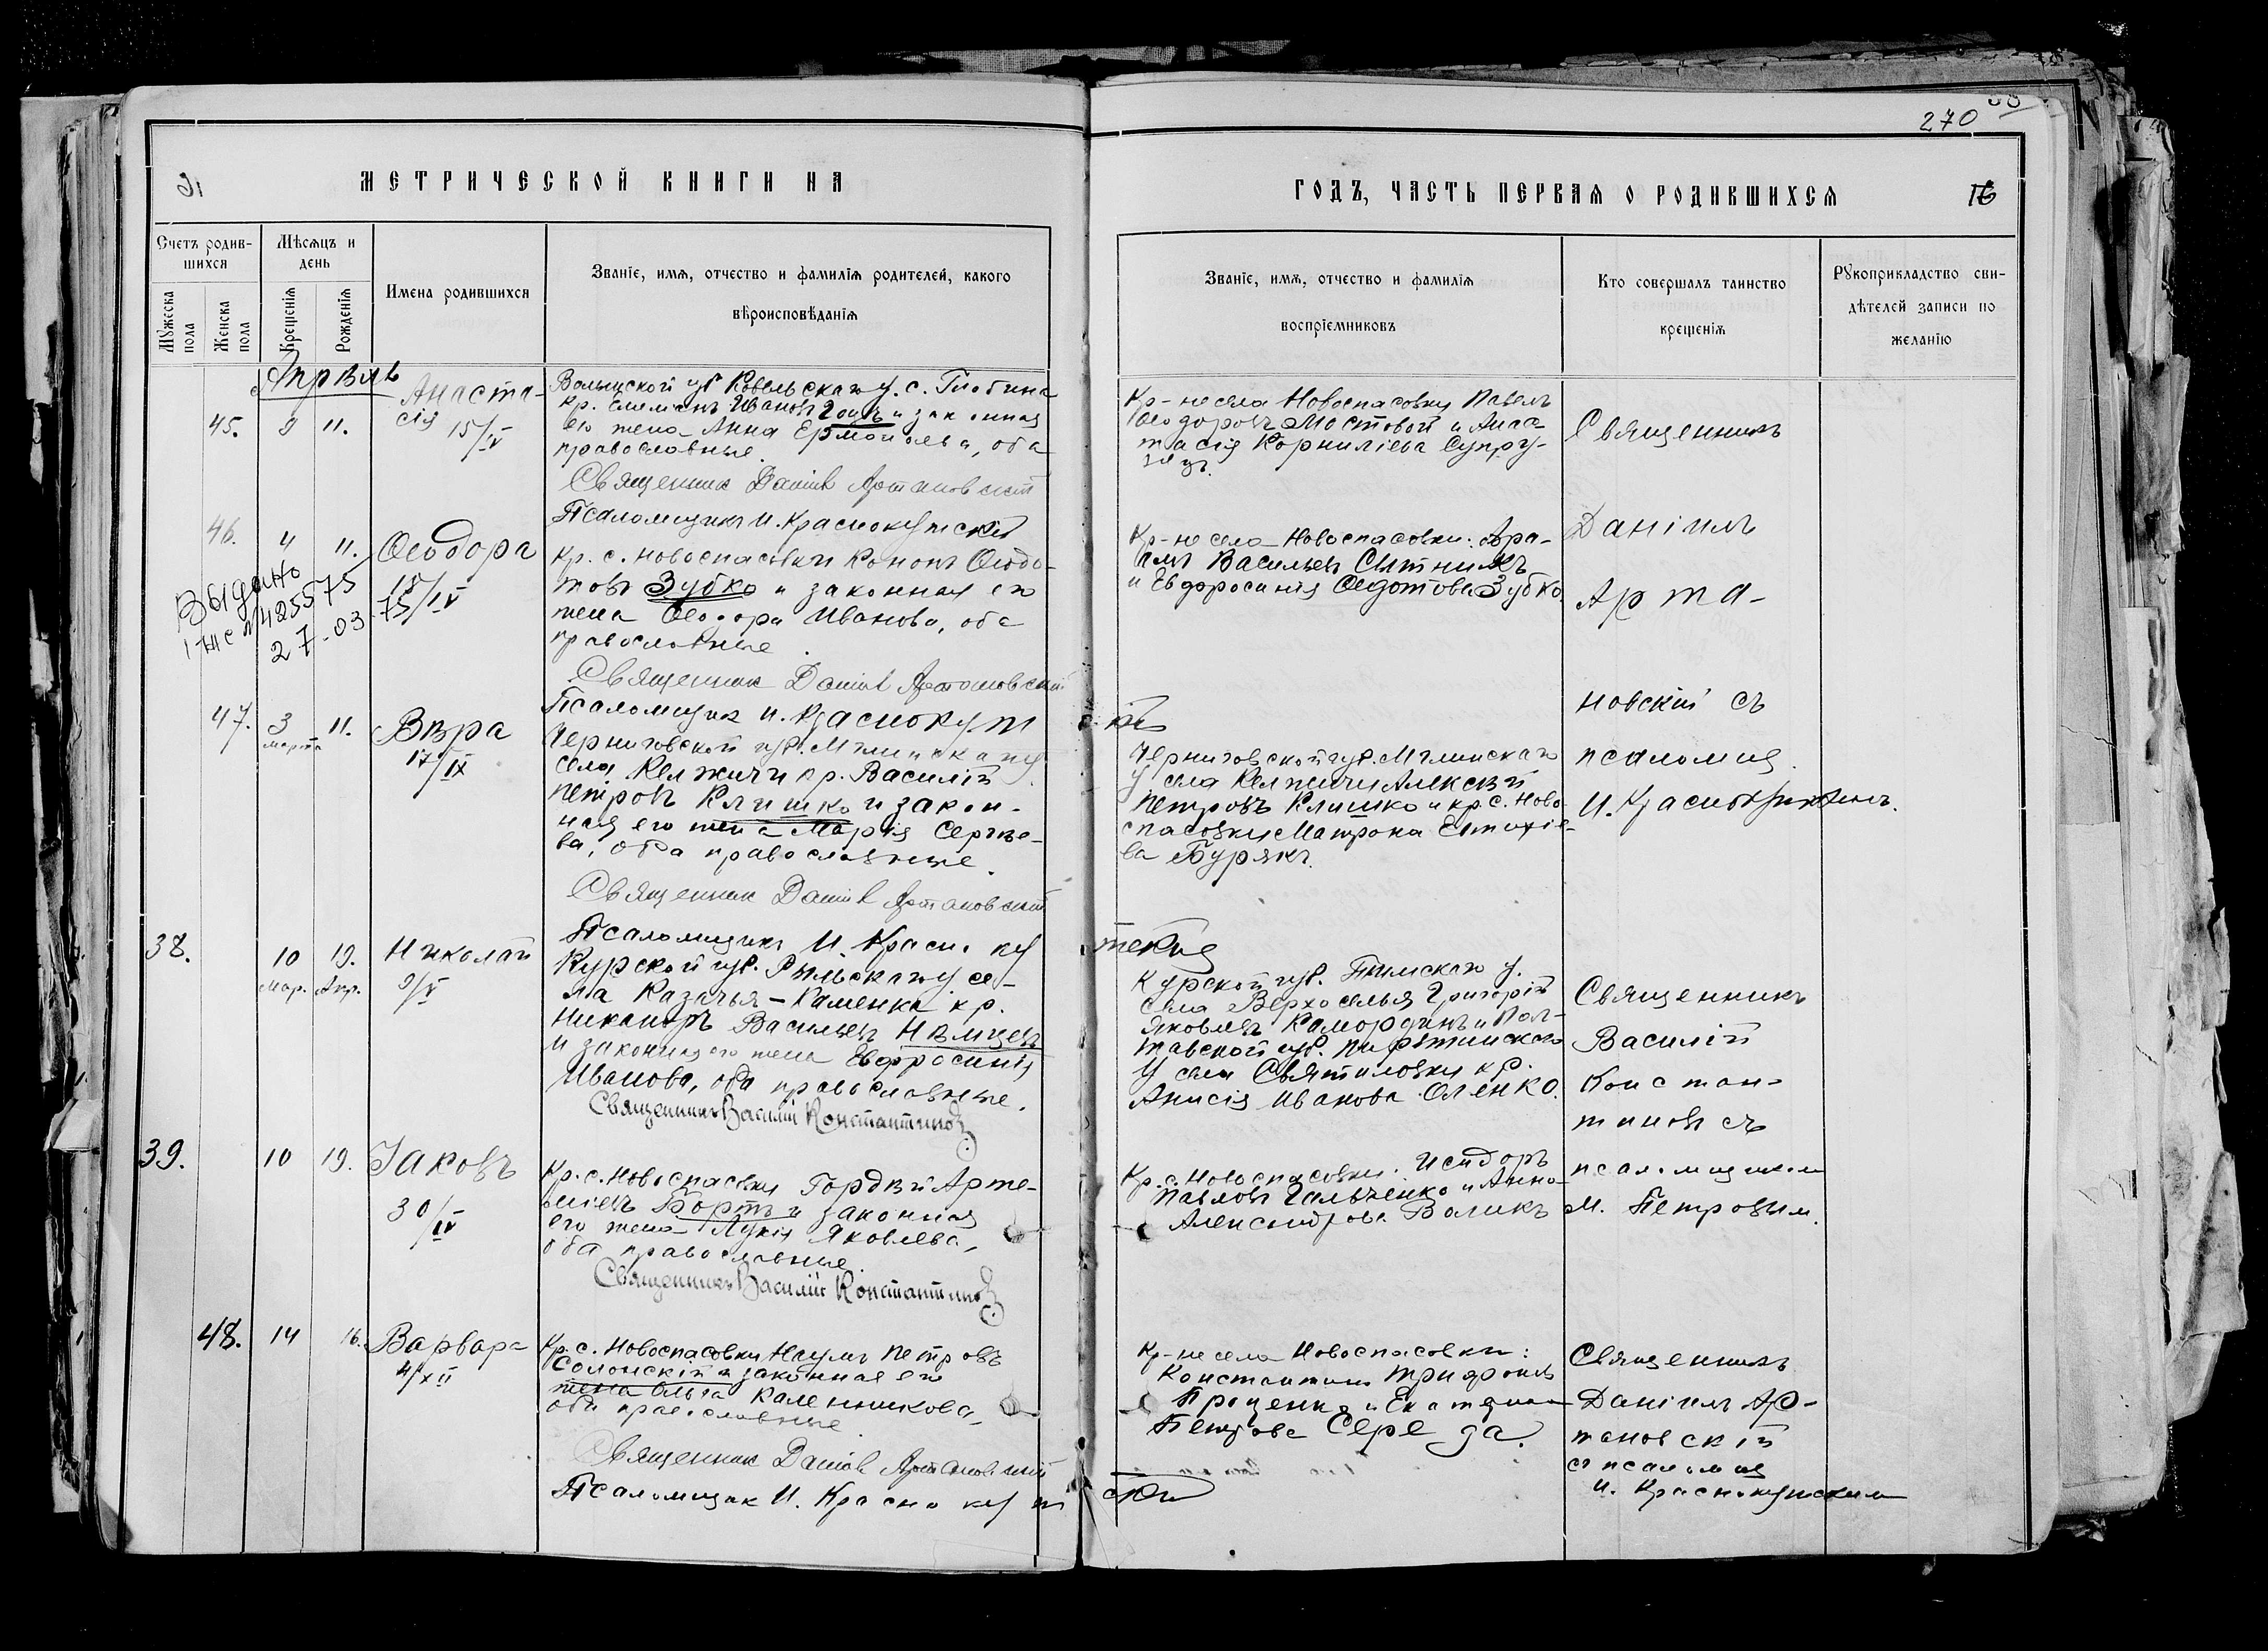 270
МЕТРИЧЕСКОЙ КНИГИ НА
ГОДЪ, ЧАСТЬ ПЕРВАЯ О РОДИВШИХСЯ
16
Счетъ родив-
шихся
Мѣсяцъ и
день
Мужеска пола
Женска пола
Крещенія
Рожденія
Имена родившихся
Званіе, имя, отчество и фамилія родителей, какого
вѣроисповѣданія
Званіе, имя, отчество и фамилія
воспріемниковъ
Кто совершалъ таинство
крещенія
Рукоприкладство сви-
дѣтелей записи по
желанію
Апрѣль
45.
9 11.
Анаста-
сія
15/IV
Волынской губ. Ковельскаго у. с.
Кр. Ивановъ и законная
его жена Анна, оба
православные.
Священник Даниил Артановский
Псаломщикъ И. Краснокутскій
Кр-не села Новоспасовки Павелъ
Ѳеодоровъ Мостовой и Анас-
тасія Корниліева Супру-
Священникъ
46.
11.
Ѳеодора
15/IV
Выдано
27-03-75
Кр. с. Новоспасовки Кононъ Ѳедо-
товъ Зубко и законная его
жена Ѳеодора Иванова, оба
православные.
Священник Даниил Артановский
Псаломщик И. Краснокутскій
Кр-не села Новоспасовки: Авра-
амъ Васильевъ Сытникъ
и Евфросинія Ѳедотова Зубко.
Даніилъ
Арта-
новскій съ
47.
3 11.
марта
Вѣра
17/IX
Черниговской губ. Мглинскаго у.
села Кр. Василій
Петровъ Клишко и закон-
ная его жена Марія Сергѣе-
ва, оба православные.
Священник Даниил Артановский
Псаломщикъ И. Краснокутскій
Черниговской губ. Мглинскаго
у. села Алексѣй
Петровъ Клишко и кр. с. Ново-
спасовки Матрона Евтихіе-
ва Бурякъ.
псаломщ.
И. Краснокутскимъ.
38.
10 19.
Мар. Апр.
Николай
9/V
Курской губ. Рыльскаго у. се-
ла Казачья-Каменка кр.
Никаноръ Васильевъ Нѣмцевъ
и законная его жена Евфросинія
Иванова, оба православные.
Священникъ Василій Константиновъ
Курской губ. Тимскаго у.
села Верхоселья Григорій
Яковлевъ Камординъ и Пол-
тавской губ. Пирятинскаго
у села Святиловки кр.
Анисія Иванова Оленко.
Священникъ
Василій
Констан-
тиновъ съ
39.
10 19.
Іаковъ
30/IV
Кр. с. Новоспасовки Гордѣй Арте-
міевъ Бортъ и законная
его жена Лукія Яковлева,
оба православные.
Священникъ Василій Константиновъ
Кр. с. Новоспасовки: Исидоръ
Павловъ Гальченко и Анна
Александрова Воликъ
псаломщикомъ
М. Петровым.
48.
14 16.
Варвара
4/XII
Кр. с. Новоспасовки Наумъ Петровъ
Солонскій и законная его
жена Ольга Каленникова,
оба православные.
Священник Даниил Артановский
Псаломщик И. Краснокутскій
Кр-не села Новоспасовки:
Константинъ Трифоновъ
Проценко и Екатерина
Петрова Середа.
Священникъ
Даніилъ Ар-
тановскій
съ псаломщ
И. Краснокутскимъ